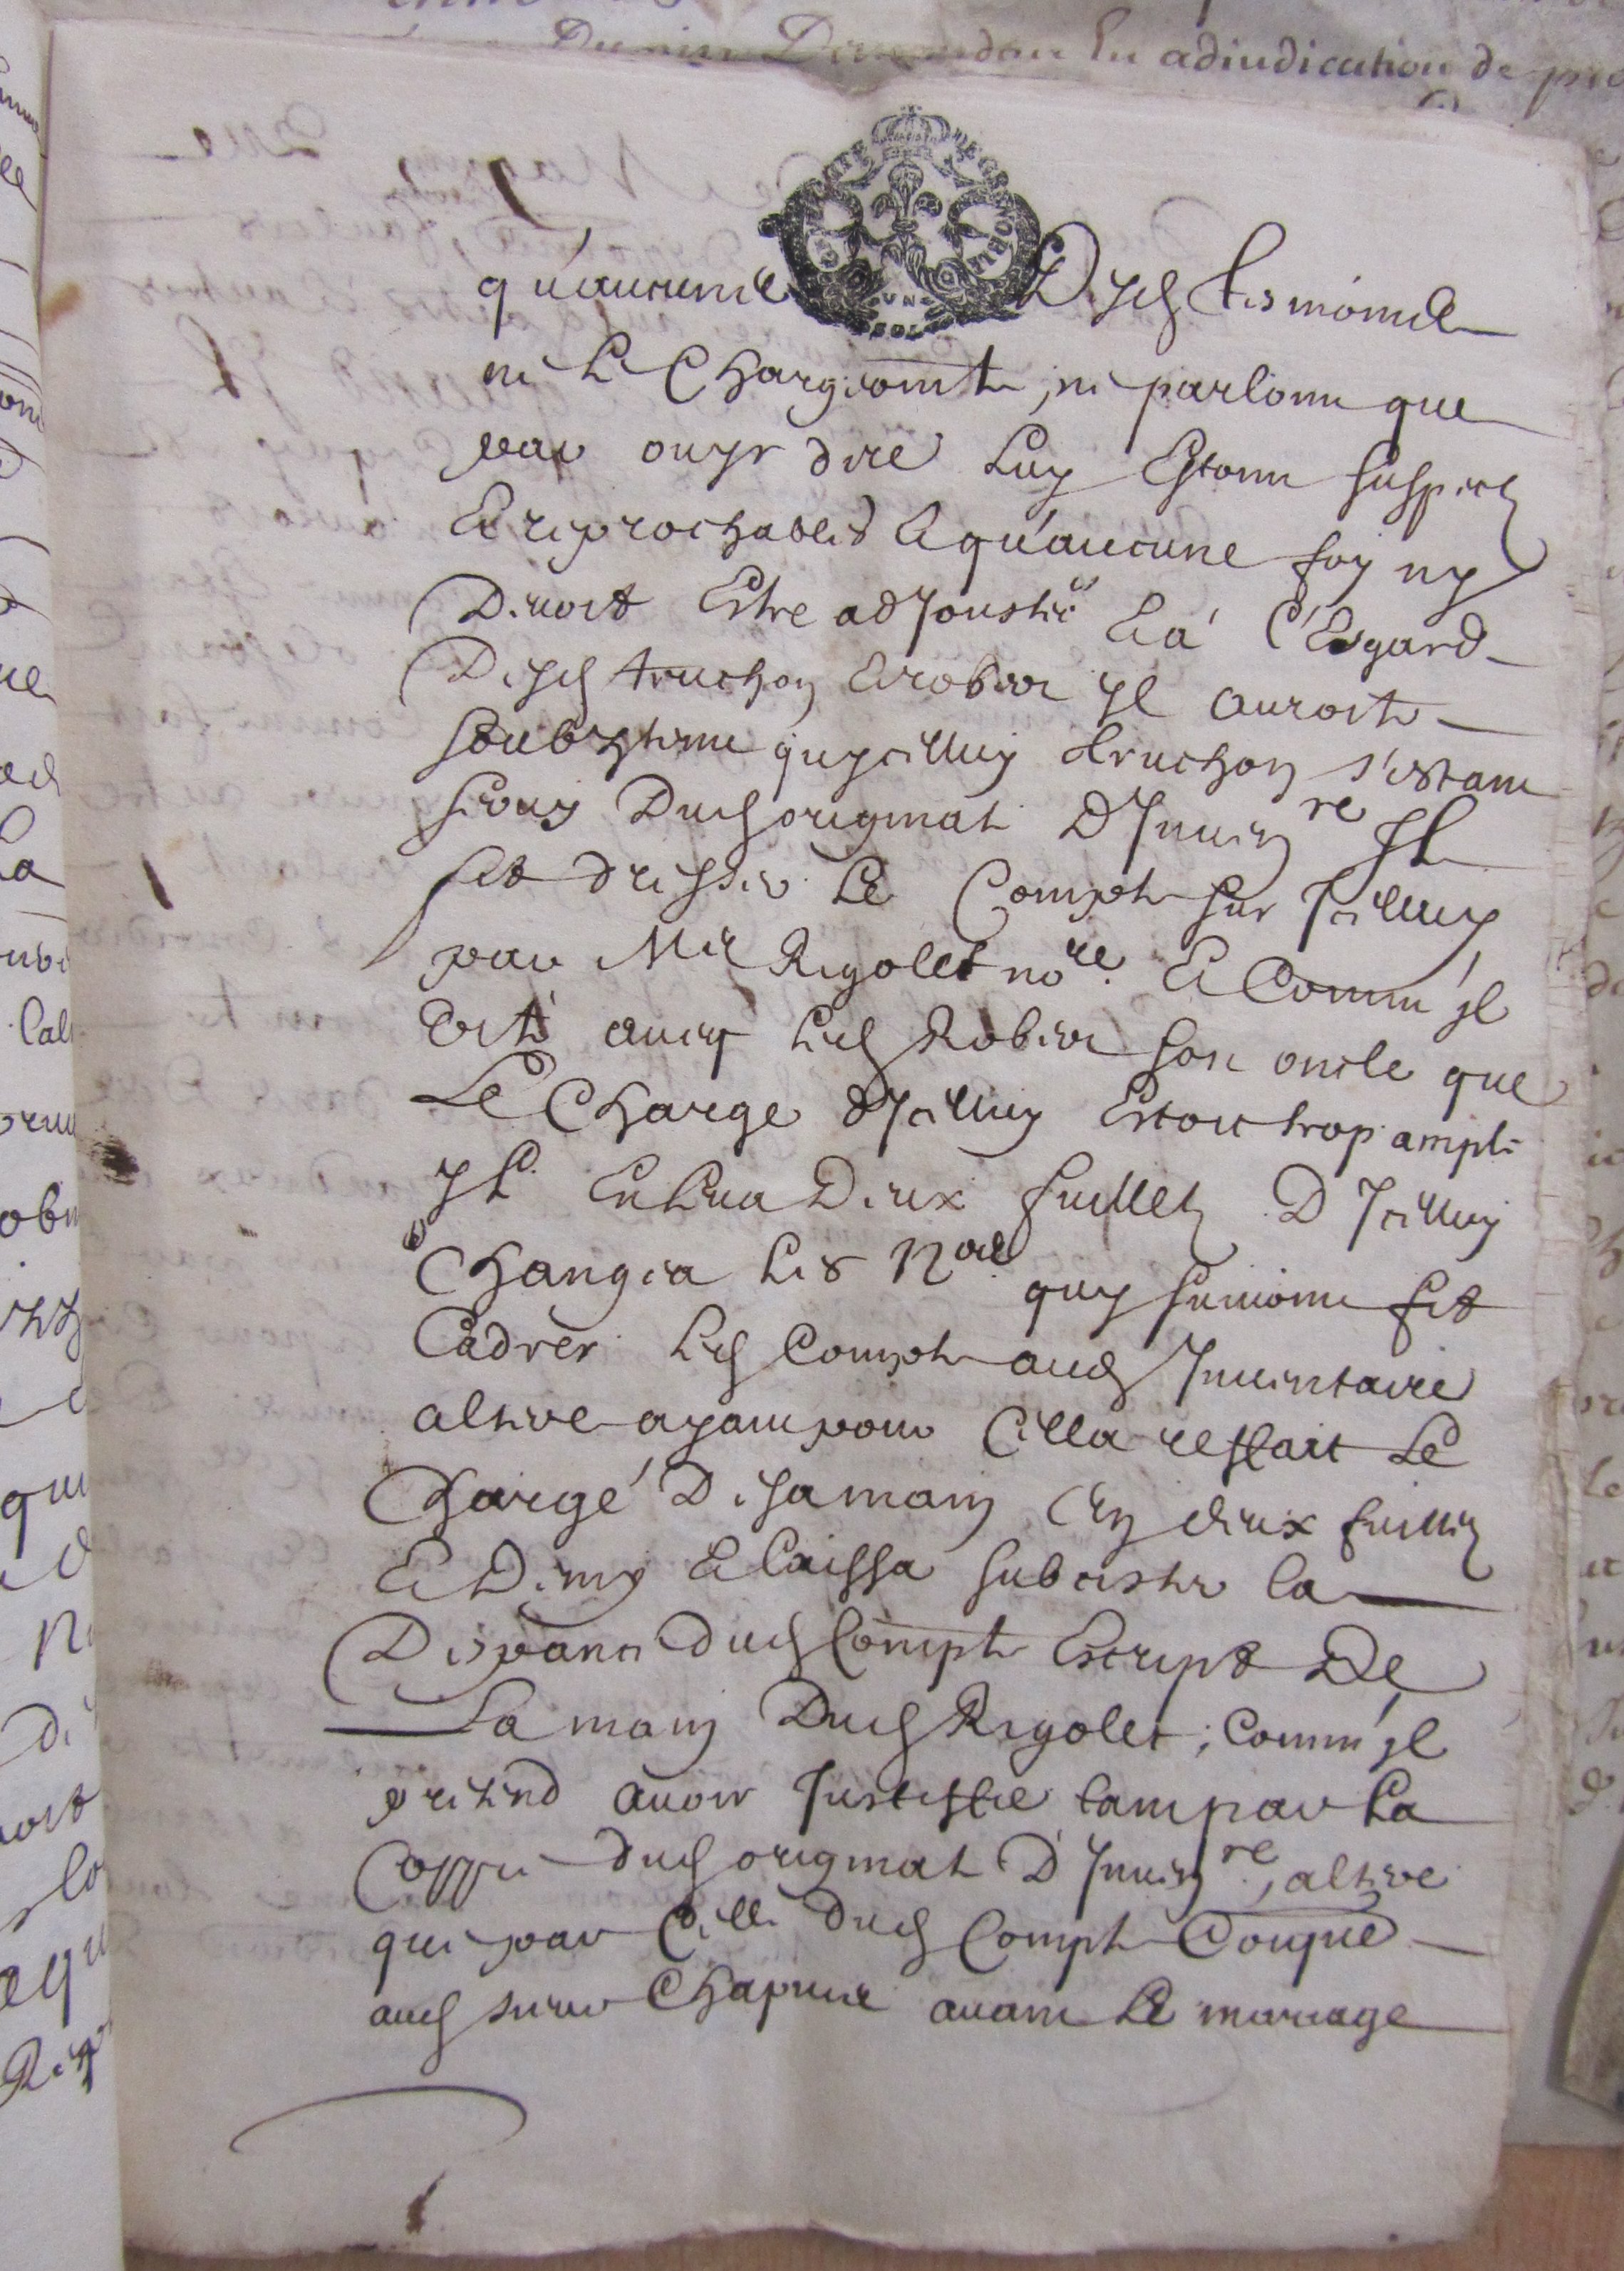 adiudication de
GNALITE DE GRENOBLE
VN SOL
qu'aucune Desd tesmoins
ne Le Chargeoint, ne parlant que
par ouyr dire Luy Estant suspects
Et reprochables Et qu'aucune foy ny
Devoit Estre adJoustée Et a l'Esgard
Desd truchon Et robert Jl auroit
soubstenu quycelluy truchon s'estant
servy Dud original D'Inven.re Jl
fit dresser Le Compte sur Jcelluy
par Me Rigollet no.re Et Comm'jl
dit avec Led Robert son oncle que
Le Charge d'Jcelluy Estoit trop ample
Jl Enleva Deux fuillets D'Jcelluy
Changea Les N.res quy suivoint fit
Cadrer Led Compte aud Inventaire
alteré ayant pour Cella reffait Le
Chargé De sa main En deux fuillets
Et Demy Et laissa subcister la
Despance dud Compte Escript De
La main Dud Rigolet ; Comm'jl
pretend avoir Justiffié tant par La
Coppie dud original D'Inven.re, alteré
que par Celle dud Compte
aud sieur avant Le mariage